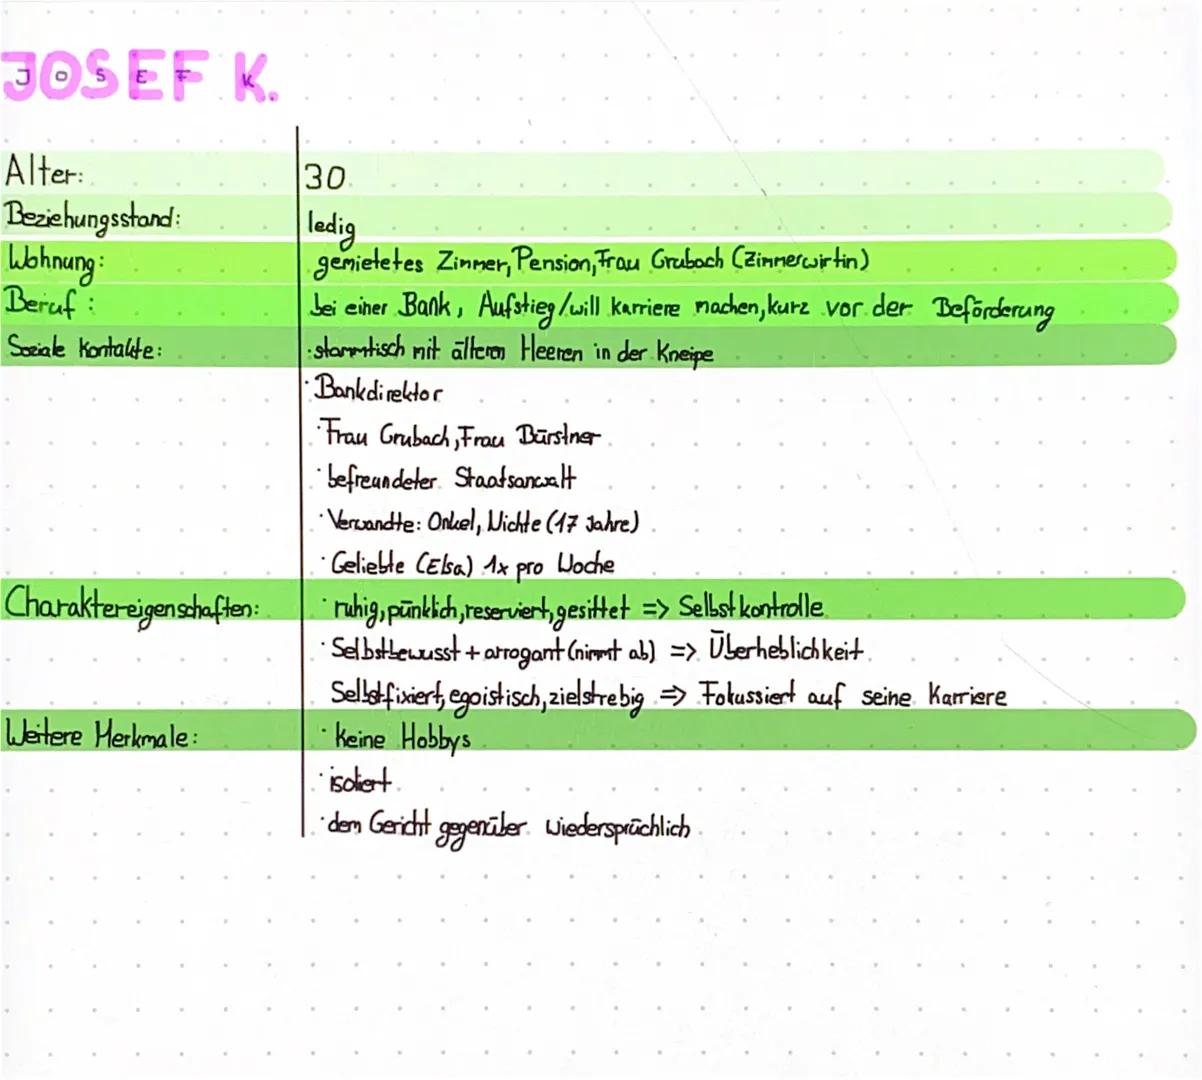 JOSEF K.
Alter: 30
Beziehungsstand: ledig
Wohnung: gemietetes Zimmer, Pension, Frau Grubach (Zimmerwirtin)
Beruf: bei einer Bank, Aufstieg/will Karriere machen, kurz vor der Beförderung
Soziale Kontakte: ·stammtisch mit älteren Heeren in der Kneipe
·Bankdirektor
·Frau Grubach, Frau Bürstner
·befreundeter Staatsanwalt
·Verwandte: Onkel, Nichte (17 Jahre)
·Geliebte (Elsa) 1x pro Woche
Charaktereigenschaften: ·ruhig, pünklich, reserviert, gesittet => Selbstkontrolle
·Selbstbewusst + arrogant (nimmt ab) => Überheblichkeit
Selbstfixiert, egoistisch, zielstrebig => Fokussiert auf seine Karriere
Weitere Merkmale: ·Keine Hobbys
·isoliert
·dem Gericht gegenüber wiedersprüchlich